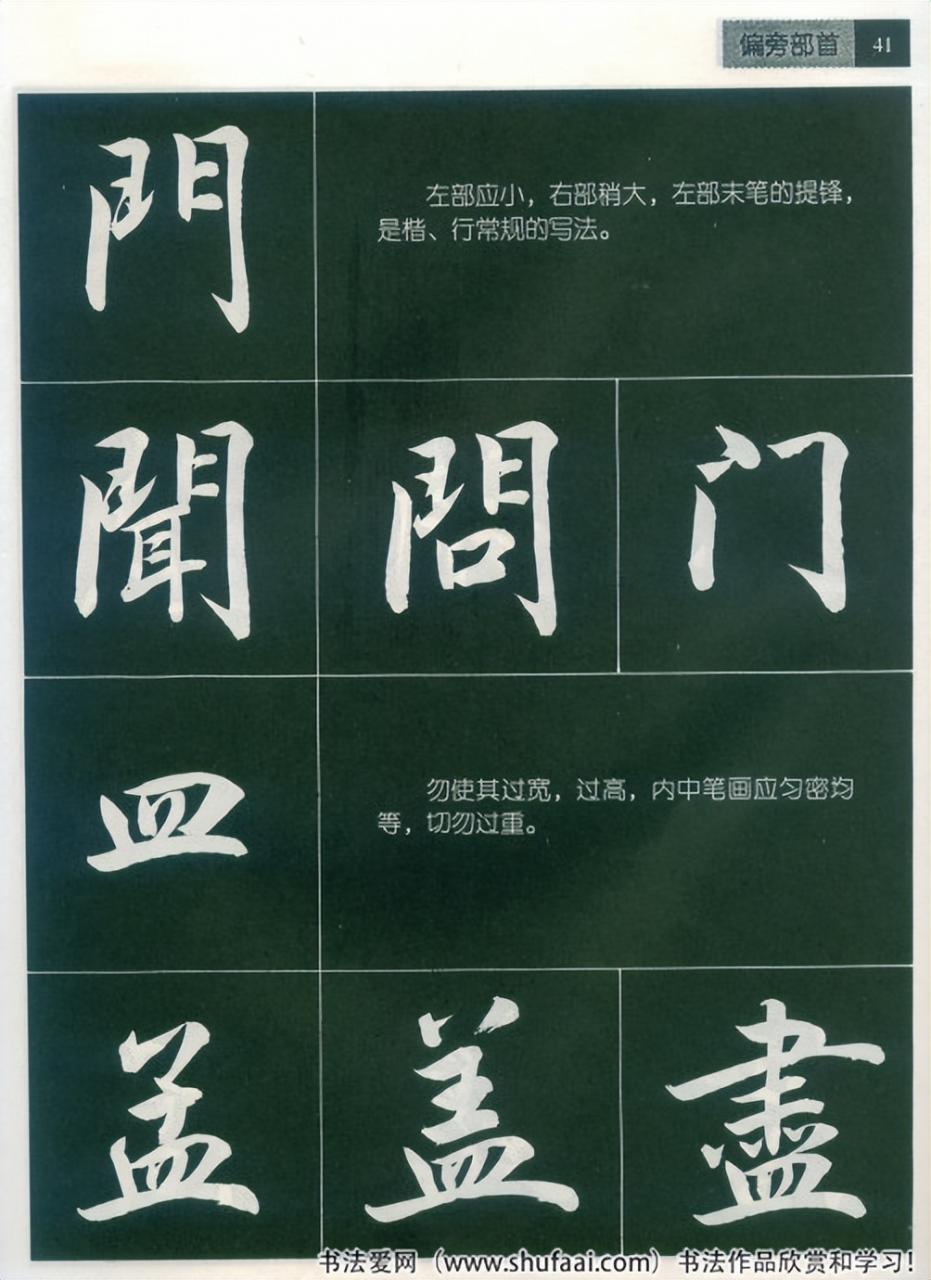 偏旁部首 41
門
左部应小，右部稍大，左部末笔的提锋，
是楷、行常规的写法。
聞 問 门
皿
勿使其过宽，过高，内中笔画应匀密均
等，切勿过重。
盖 盡
书法爱网（www.shufaai.com）书法作品欣赏和学习！